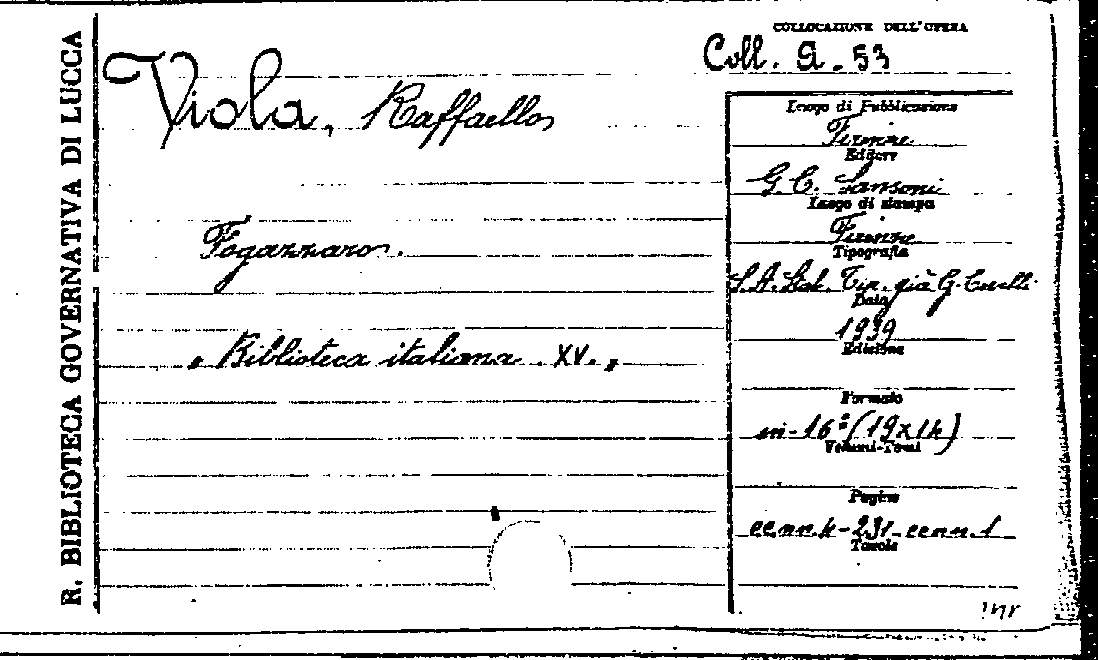 R. BIBLIOTECA GOVERNATIVA DI LUCCA
COLLOCAZIONE DELL'OPERA
Coll. A. 53
Viola, Raffaello
Fogazzaro.
"Biblioteca italiana XV."
Luogo di Pubblicazione
Firenze
Editore
G. C. Sansoni
Luogo di stampa
Firenze
Tipografia
S.A. Stab. Tip. già G. Civelli
Data
1939
Edizione
Formato
in-16° (19x14)
Volumi-Tomi
Pagine
cc.nn.4-231-cc.nn.1
Tavole